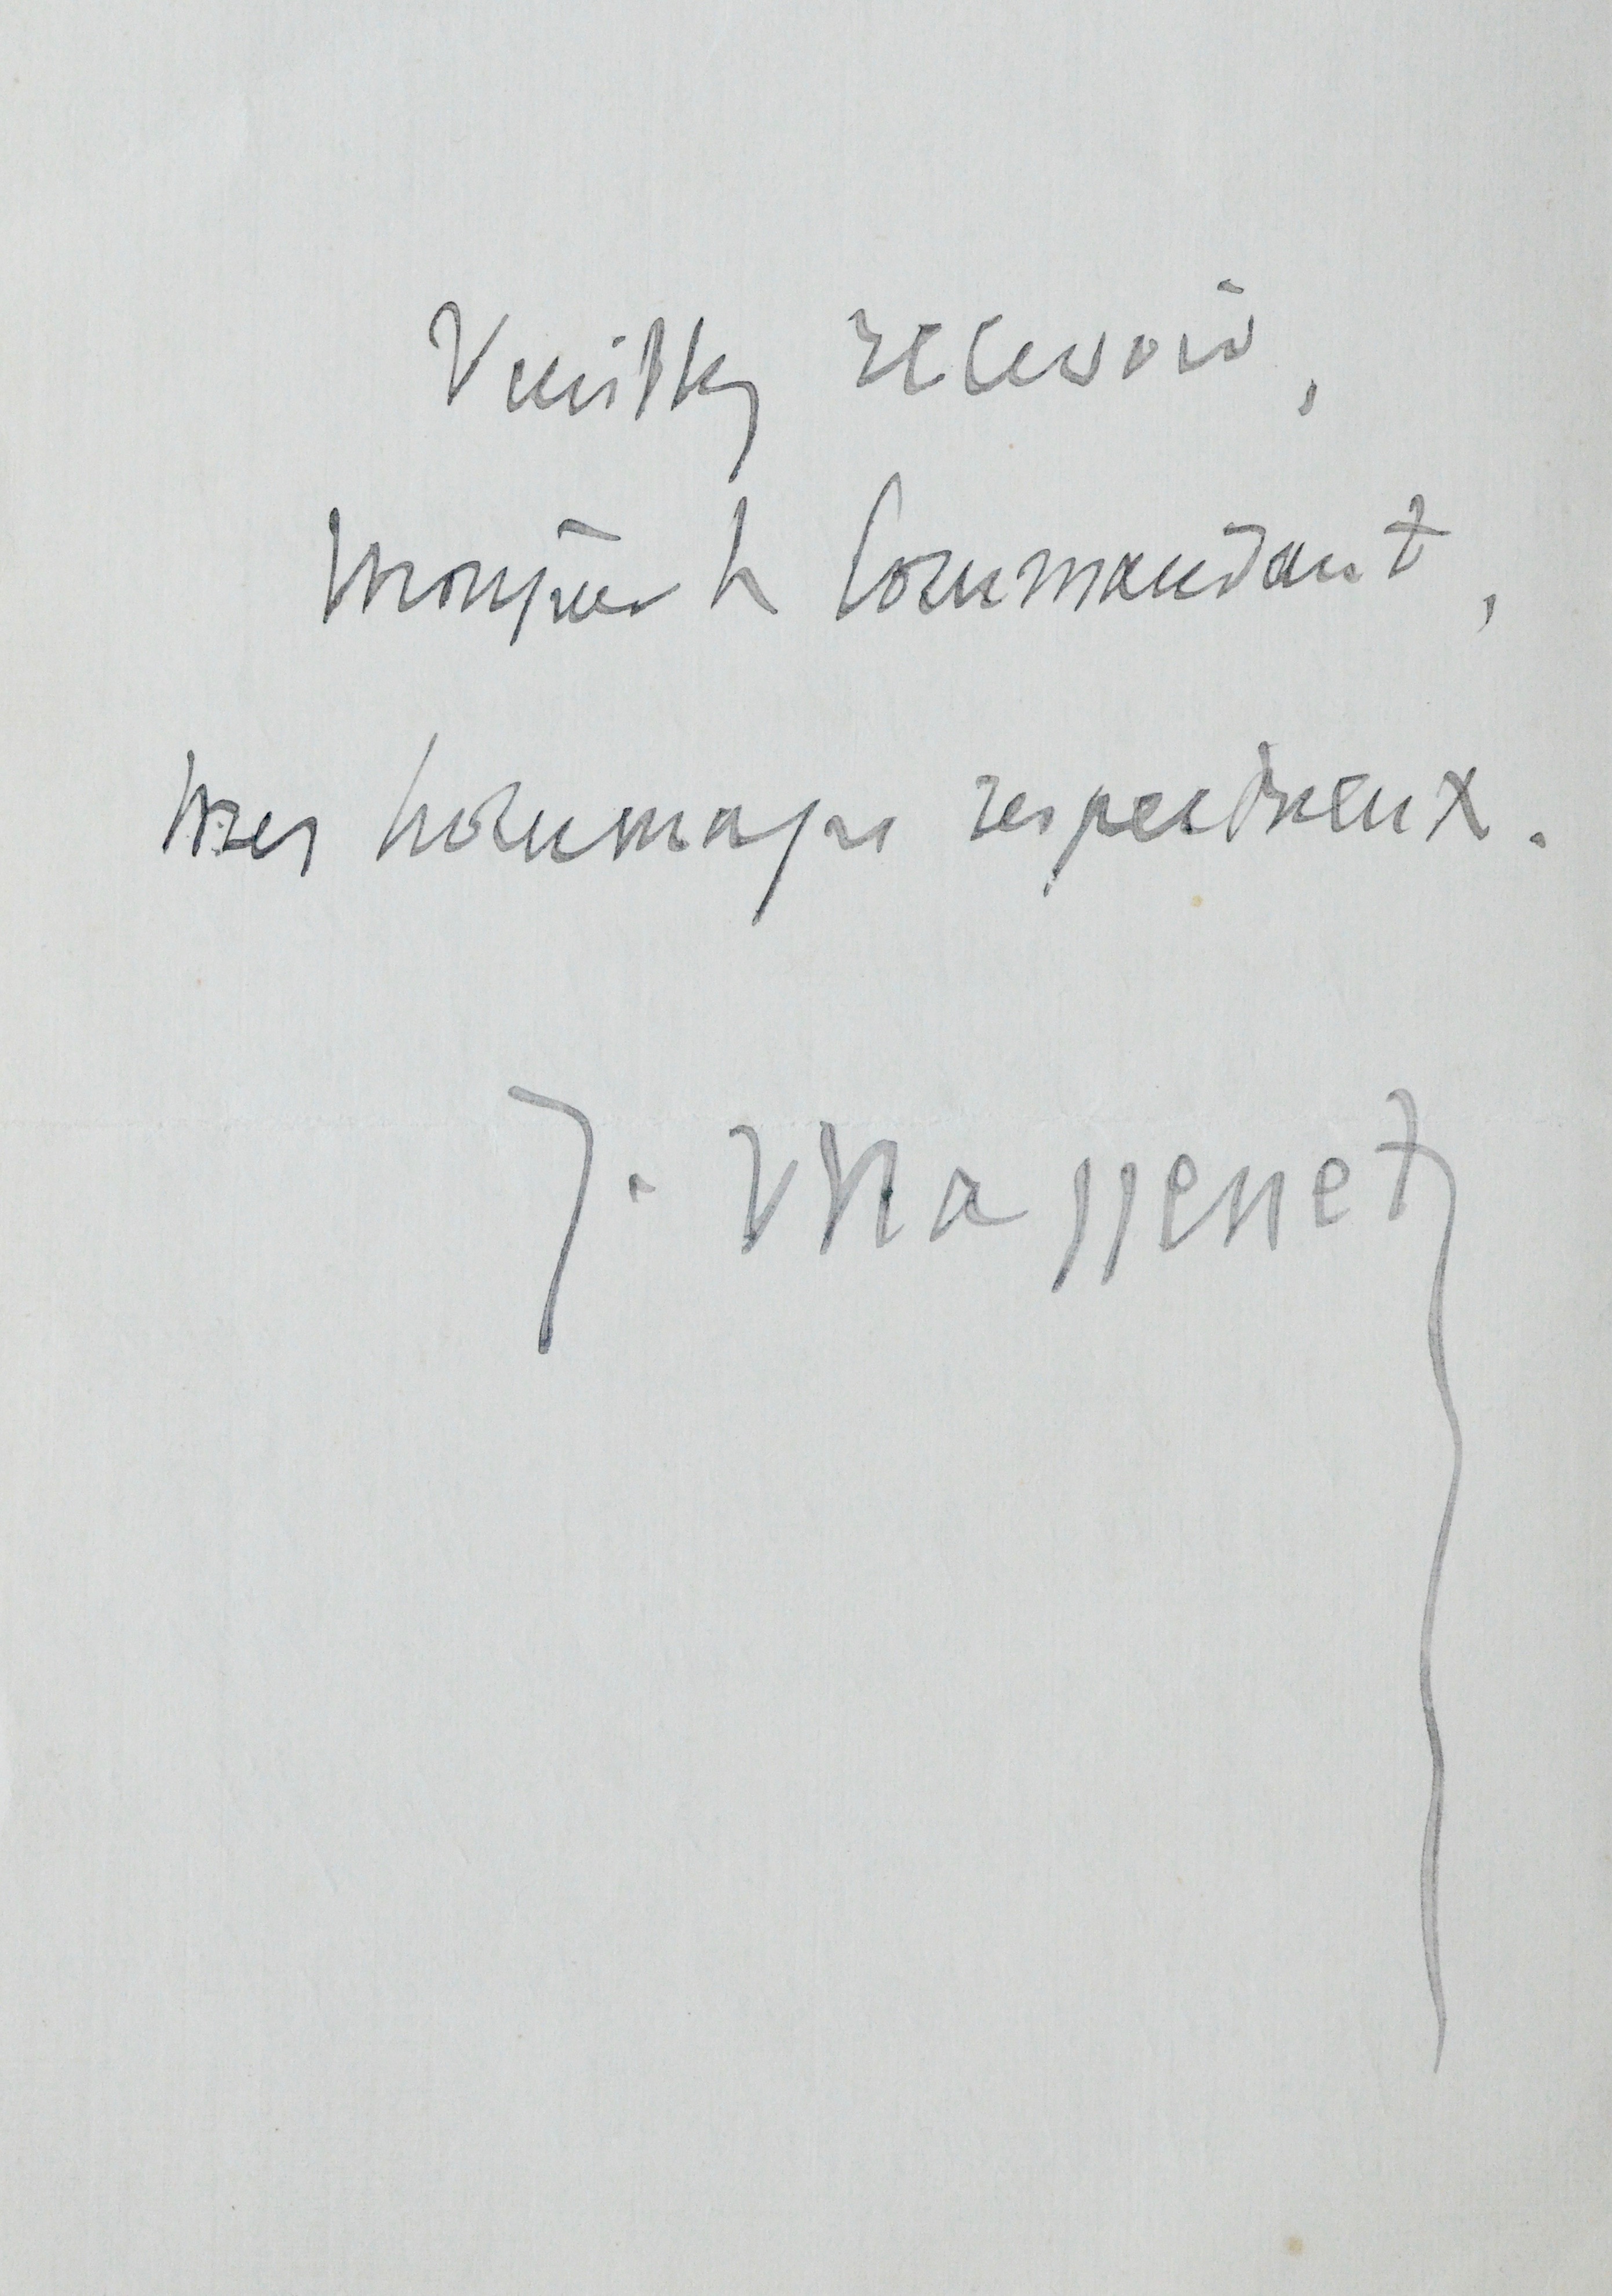 Veuillez recevoir,
Monsieur le Commandant,
mes hommages respectueux.
J. Massenet